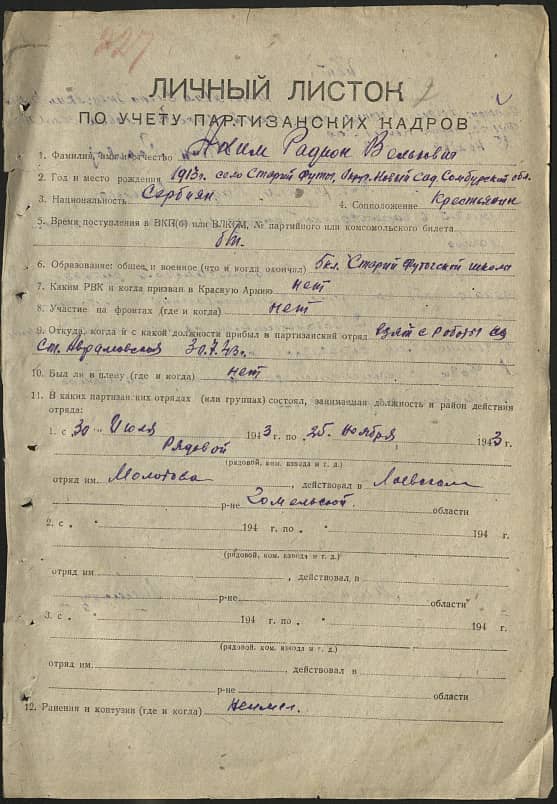 227
ЛИЧНЫЙ ЛИСТОК
ПО УЧЕТУ ПАРТИЗАНСКИХ КАДРОВ
1. Фамилия, имя и отчество Аким Радион Велькович
2. Год и место рождения 1913г. село Старий Футы, Окр. Новый Сад, Сомбурской обл.
3. Национальность Сербиян 4. Соцположение Крестьянин
5. Время поступления в ВКП(б) или ВЛКСМ, № партийного или комсомольского билета
б/п.
6. Образование: общее и военное (что и когда окончил) 5кл. Старий Футогской школы
7. Каким РВК и когда призван в Красную Армию нет
8. Участие на фронтах (где и когда) нет
9. Откуда, когда и с какой должности прибыл в партизанский отряд Взят с работы
ст. Аврамовская 30.7.43г.
10. Был ли в плену (где и когда) нет
11. В каких партизанских отрядах (или группах) состоял, занимаемая должность и район действия
отряда:
1. с 30 Июля 1943 г. по 25. ноября 1943 г.
Рядовой
(рядовой, ком. взвода и т. д.)
отряд им. Молотова, действовал в Лоевском
р-не Гомельской области
2. с " 194 г. по " 194 г.
(рядовой, ком. взвода и т. д.)
отряд им. , действовал в
р-не области
3. с " 194 г. по " 194 г.
(рядовой, ком. взвода и т. д.)
отряд им. действовал в
р-не области
12. Ранения и контузии (где и когда) Неимел.